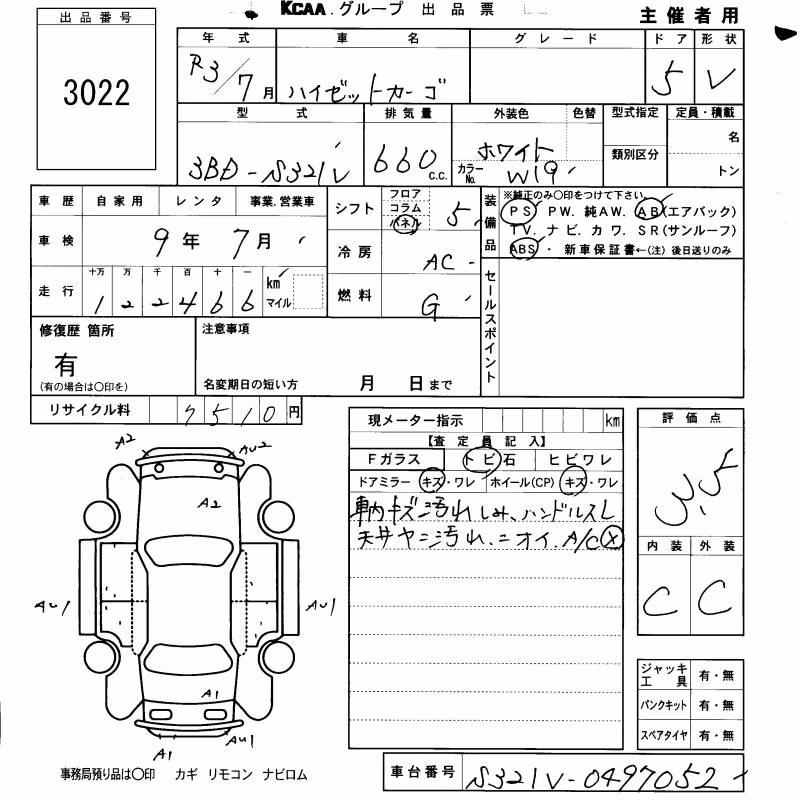 出品番号
3022
KCAA.グループ 出品票
主催者用
年式 車名 グレード ドア 形状
R3/7月 ハイゼットカーゴ 5 V
型式 排気量 外装色 色替 型式指定 定員・積載
3BD-S321V 660 C.C. ホワイト カラーNo. W19 類別区分 名
トン
車歴 自家用 レンタ 事業.営業車
車検 9年 7月
走行 十万 万 千 百 十 一
122466 km マイル
シフト フロア コラム パネル 5
冷房 AC
燃料 G
装備品
※純正のみ〇印をつけて下さい。
PS PW. 純AW. AB(エアバック)
TV. ナビ. カワ. SR(サンルーフ)
ABS・ 新車保証書←(注) 後日送りのみ
セールスポイント
修復歴 箇所
有
(有の場合は〇印を)
注意事項
名変期日の短い方 月 日まで
リサイクル料 7510円
現メーター指示 km
【査定員記入】
Fガラス トビ石 ヒビワレ
ドアミラー キズ・ワレ ホイール(CP) キズ・ワレ
車内キズ汚れしみ、ハンドルスレ
天井ヤニ汚れ.ニオイ.A/C X
評価点
3.5
内装 外装
C C
ジャッキ工具 有・無
パンクキット 有・無
スペアタイヤ 有・無
A2 AU2
A2
AU1 AU1
A1
A1 AU1
事務局預り品は〇印 カギ リモコン ナビロム
車台番号 S321V-0497052